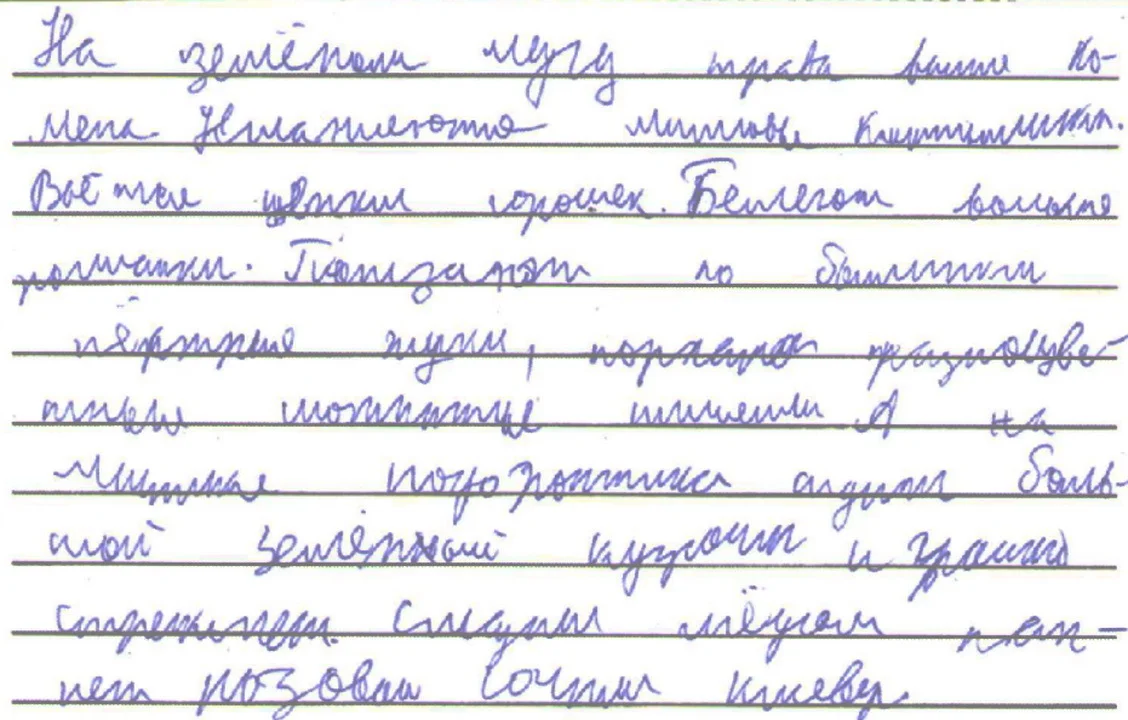 На зелёном лугу трава выше ко-
лена. Наклоняются лиловые колокольчики.
Вьётся цепкий горошек. Белеют
ромашки. Ползают по былинкам
пёстрые жуки, порхают разноцве-
тные мотыльки. А на
листике подорожника сидит боль-
шой зелёный кузнечик и громко
стрекочет. Сладким мёдом пах-
нет розовый сочный клевер.